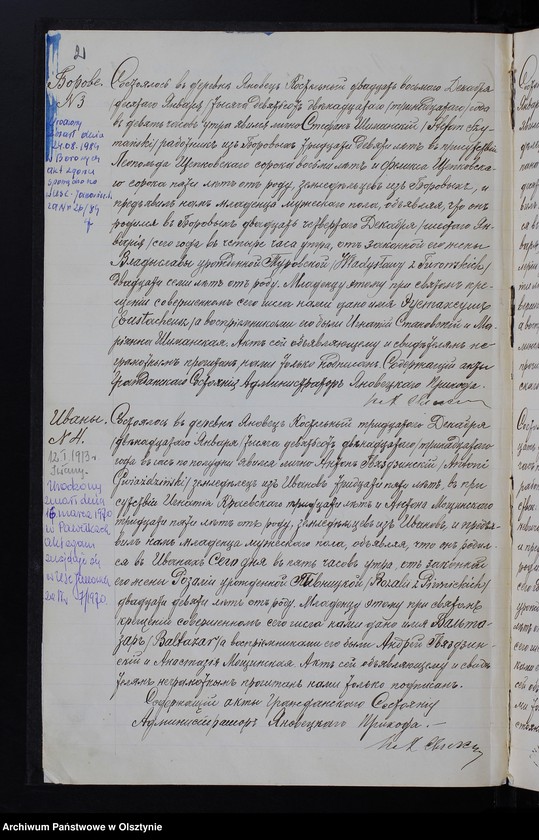 2
Борове.
N 3
Urodzony
zmarł dnia
24.08.1984
w Borowych
akt zgonu
sporządzono
w USC
za Nr 26/84
Состоялось въ деревнѣ Яновецъ Костельный двадцать восьмого Декабря
/десятаго Января/ тысяча девятьсотъ двѣнадцатаго /тринадцатаго/ года
въ девять часовъ утра явился лично Стефанъ Шиманскій /Stefan Szy-
mański/ работникъ изъ Боровыхъ тридцати девяти лѣтъ въ присутствіи
Леопольда сорока восьми лѣтъ и
сорока пяти лѣтъ отъ роду, земледѣльцевъ изъ Боровыхъ, и
предъявилъ намъ младенца мужескаго пола, объявляя, что онъ
родился въ Боровыхъ двадцать четвертаго Декабря /шестого Ян-
варя/ сего года въ четыре часа утра, отъ законной его жены
Владыславы урожденной Туровской /Władysławy z Turowskich/
двадцати семи лѣтъ отъ роду. Младенцу этому при святомъ кре-
щеніи совершенномъ сего числа нами дано имя
/Eustachiusz/ а воспріемниками его были Игнатій и Ма-
ріанна Шиманская. Актъ сей объявляющему и свидѣтелямъ не-
грамотнымъ прочитанъ нами только подписанъ. Содержащій акты
Гражданскаго Состоянія Администраторъ Яновецкаго Прихода.
Иваны.
N 4.
12 I 1913 r.
Iwany.
Urodzony
zmarł dnia
16 marca 1970
w
akt zgonu
znajduje się
w USC Janowo
za Nr 7/1970.
Состоялось въ деревнѣ Яновецъ Костельный тридцатаго Декабря
/двѣнадцатаго Января/ тысяча девятьсотъ двѣнадцатаго /тринадцатаго/
года въ часъ по полудни явился лично Антонъ Гвяздзинскій /Antoni
Gwiaździński/ земледѣлецъ изъ Ивановъ тридцати пяти лѣтъ, въ при-
сутствіи Игнатія тридцати лѣтъ и Антона Мощинскаго
тридцати пяти лѣтъ отъ роду, земледѣльцевъ изъ Ивановъ, и предъя-
вилъ намъ младенца мужескаго пола, объявляя, что онъ родил-
ся въ Иванахъ сего дня въ пять часовъ утра, отъ законной
его жены Розаліи урожденной
двадцати девяти лѣтъ отъ роду. Младенцу этому при святомъ
крещеніи совершенномъ сего числа нами дано имя Бальта-
заръ /Baltazar/ а воспріемниками его были Андрей Гвяздзин-
скій и Анастазія Мощинская. Актъ сей объявляющему и свидѣ-
телямъ неграмотнымъ прочитанъ нами только подписанъ.
Содержащій акты Гражданскаго Состоянія
Администраторъ Яновецкаго Прихода.
Archiwum Państwowe w Olsztynie